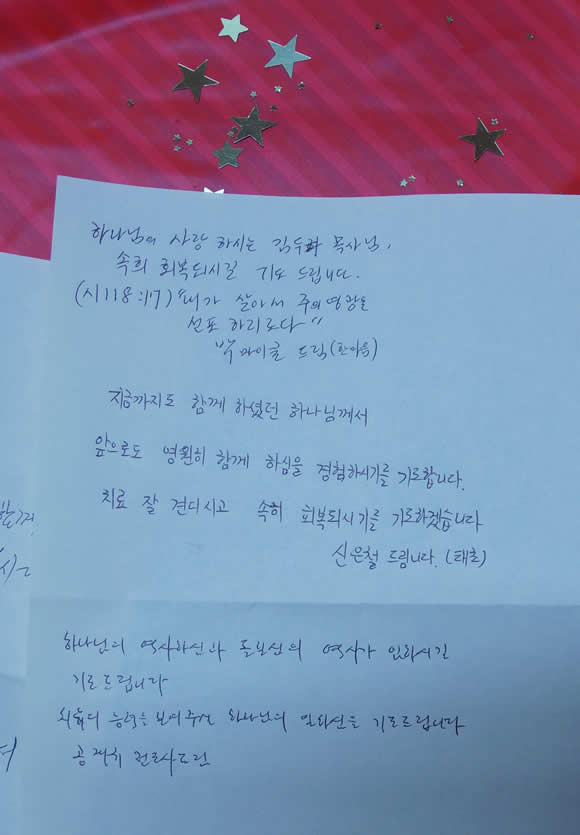 하나님의 사랑 하시는 김두화 목사님,
속희 회복되시길 기도 드립니다.
(시118:17) "내가 살아서 주의 영광을
선포 하리로다"
박 마이클 드림 (한마음)
지금까지도 함께 하셨던 하나님께서
앞으로도 영원히 함께 하심을 경험하시기를 기도합니다.
치료 잘 견디시고 속히 회복되시기를 기도하겠습니다
신은철 드립니다. (태호)
하나님의 역사하신과 돌보신의 역사가 임하시길
기도드립니다
능력을 보여주실 하나님의 임하심을 기도드립니다
전도사드림